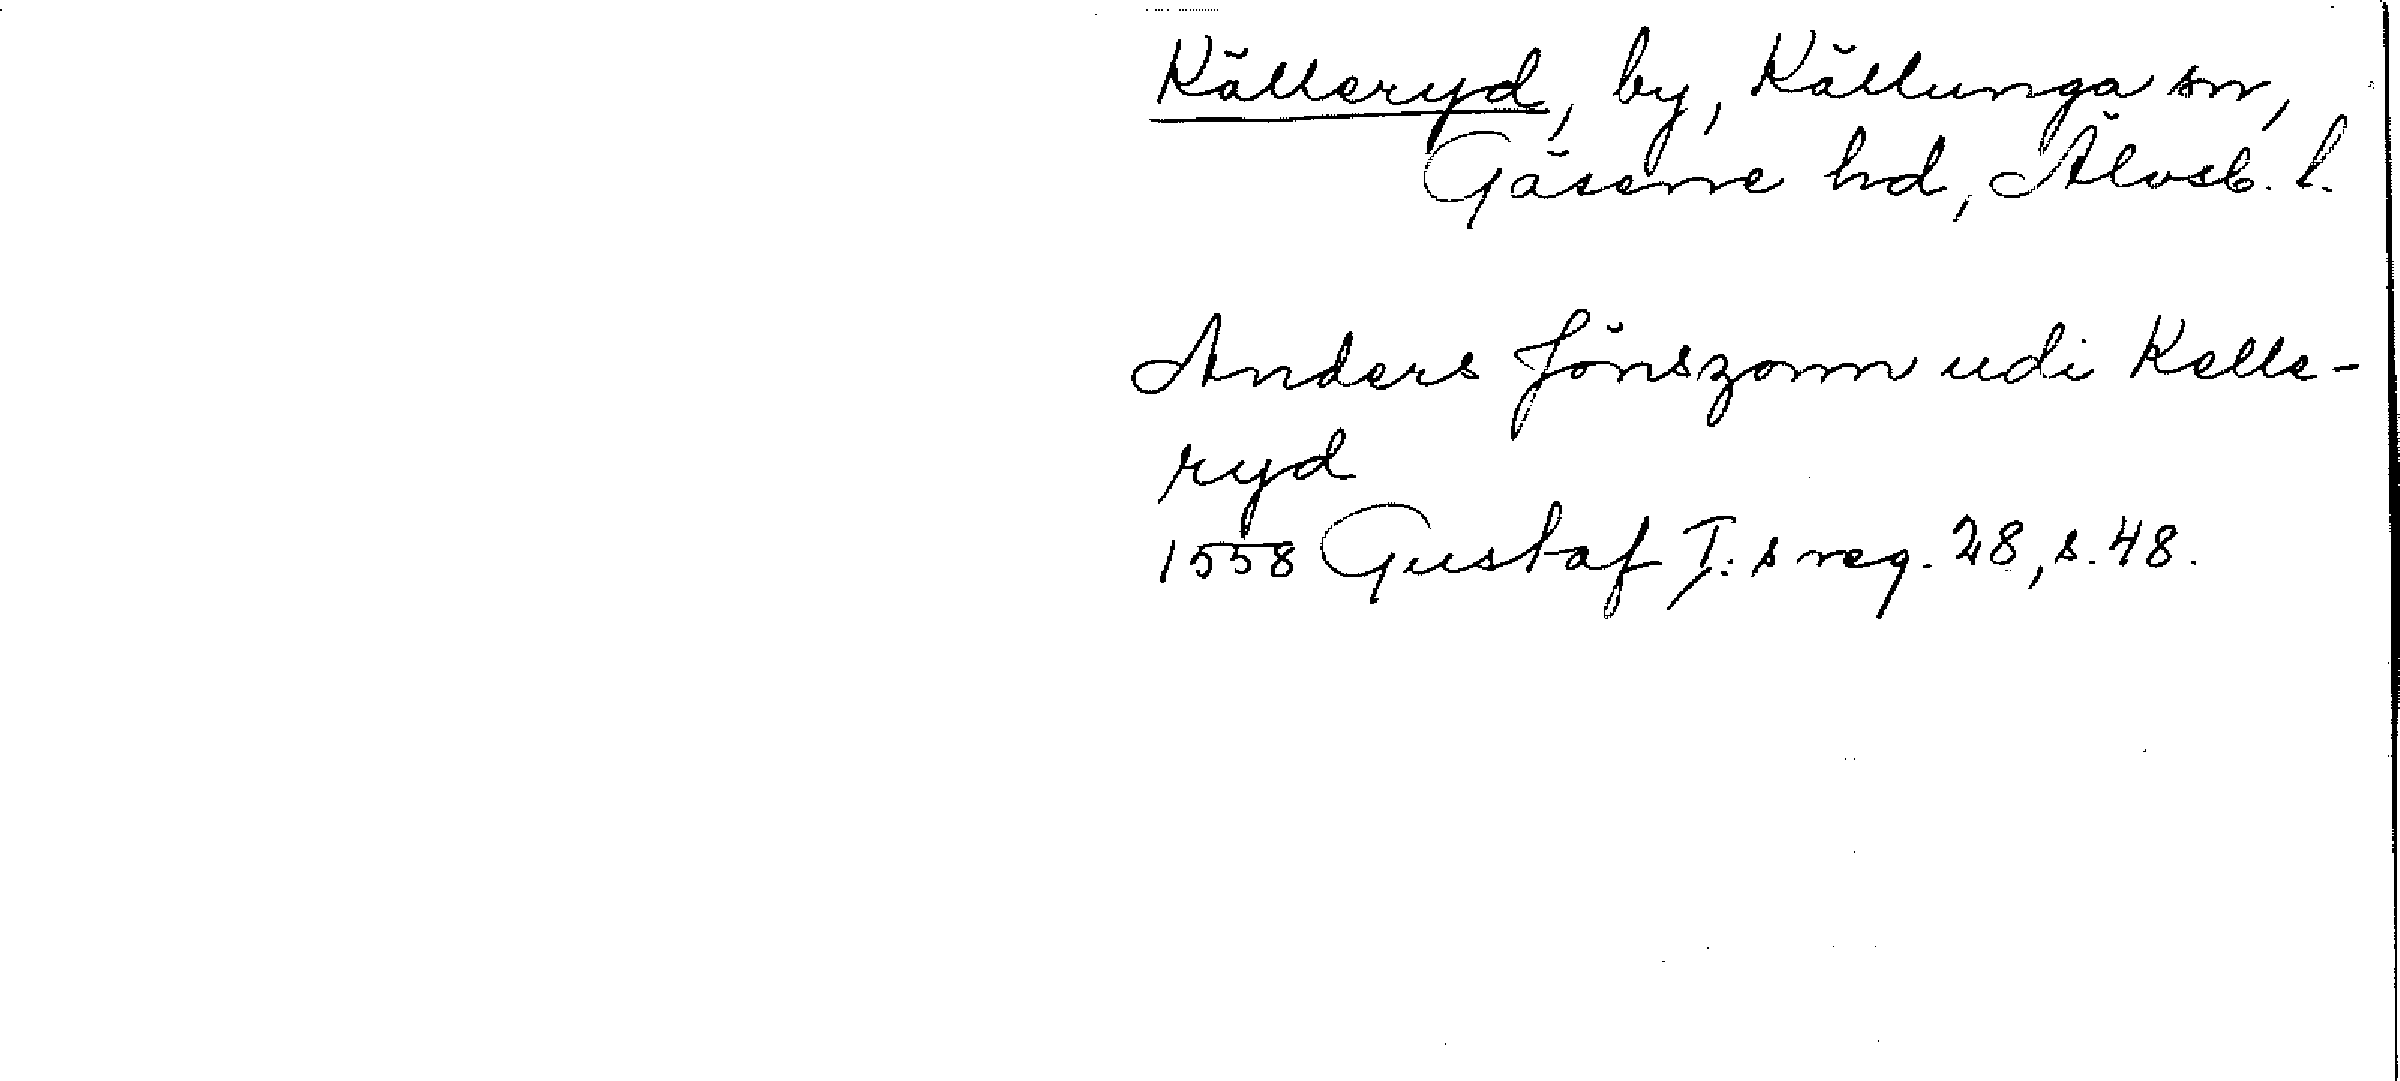 Källeryd, by, Källunga sn,
Gäsene hd, Älvsb. l.
Anders Jönszonn udi Kelle-
ryd
1558 Gustaf I:s reg. 28, s. 48.